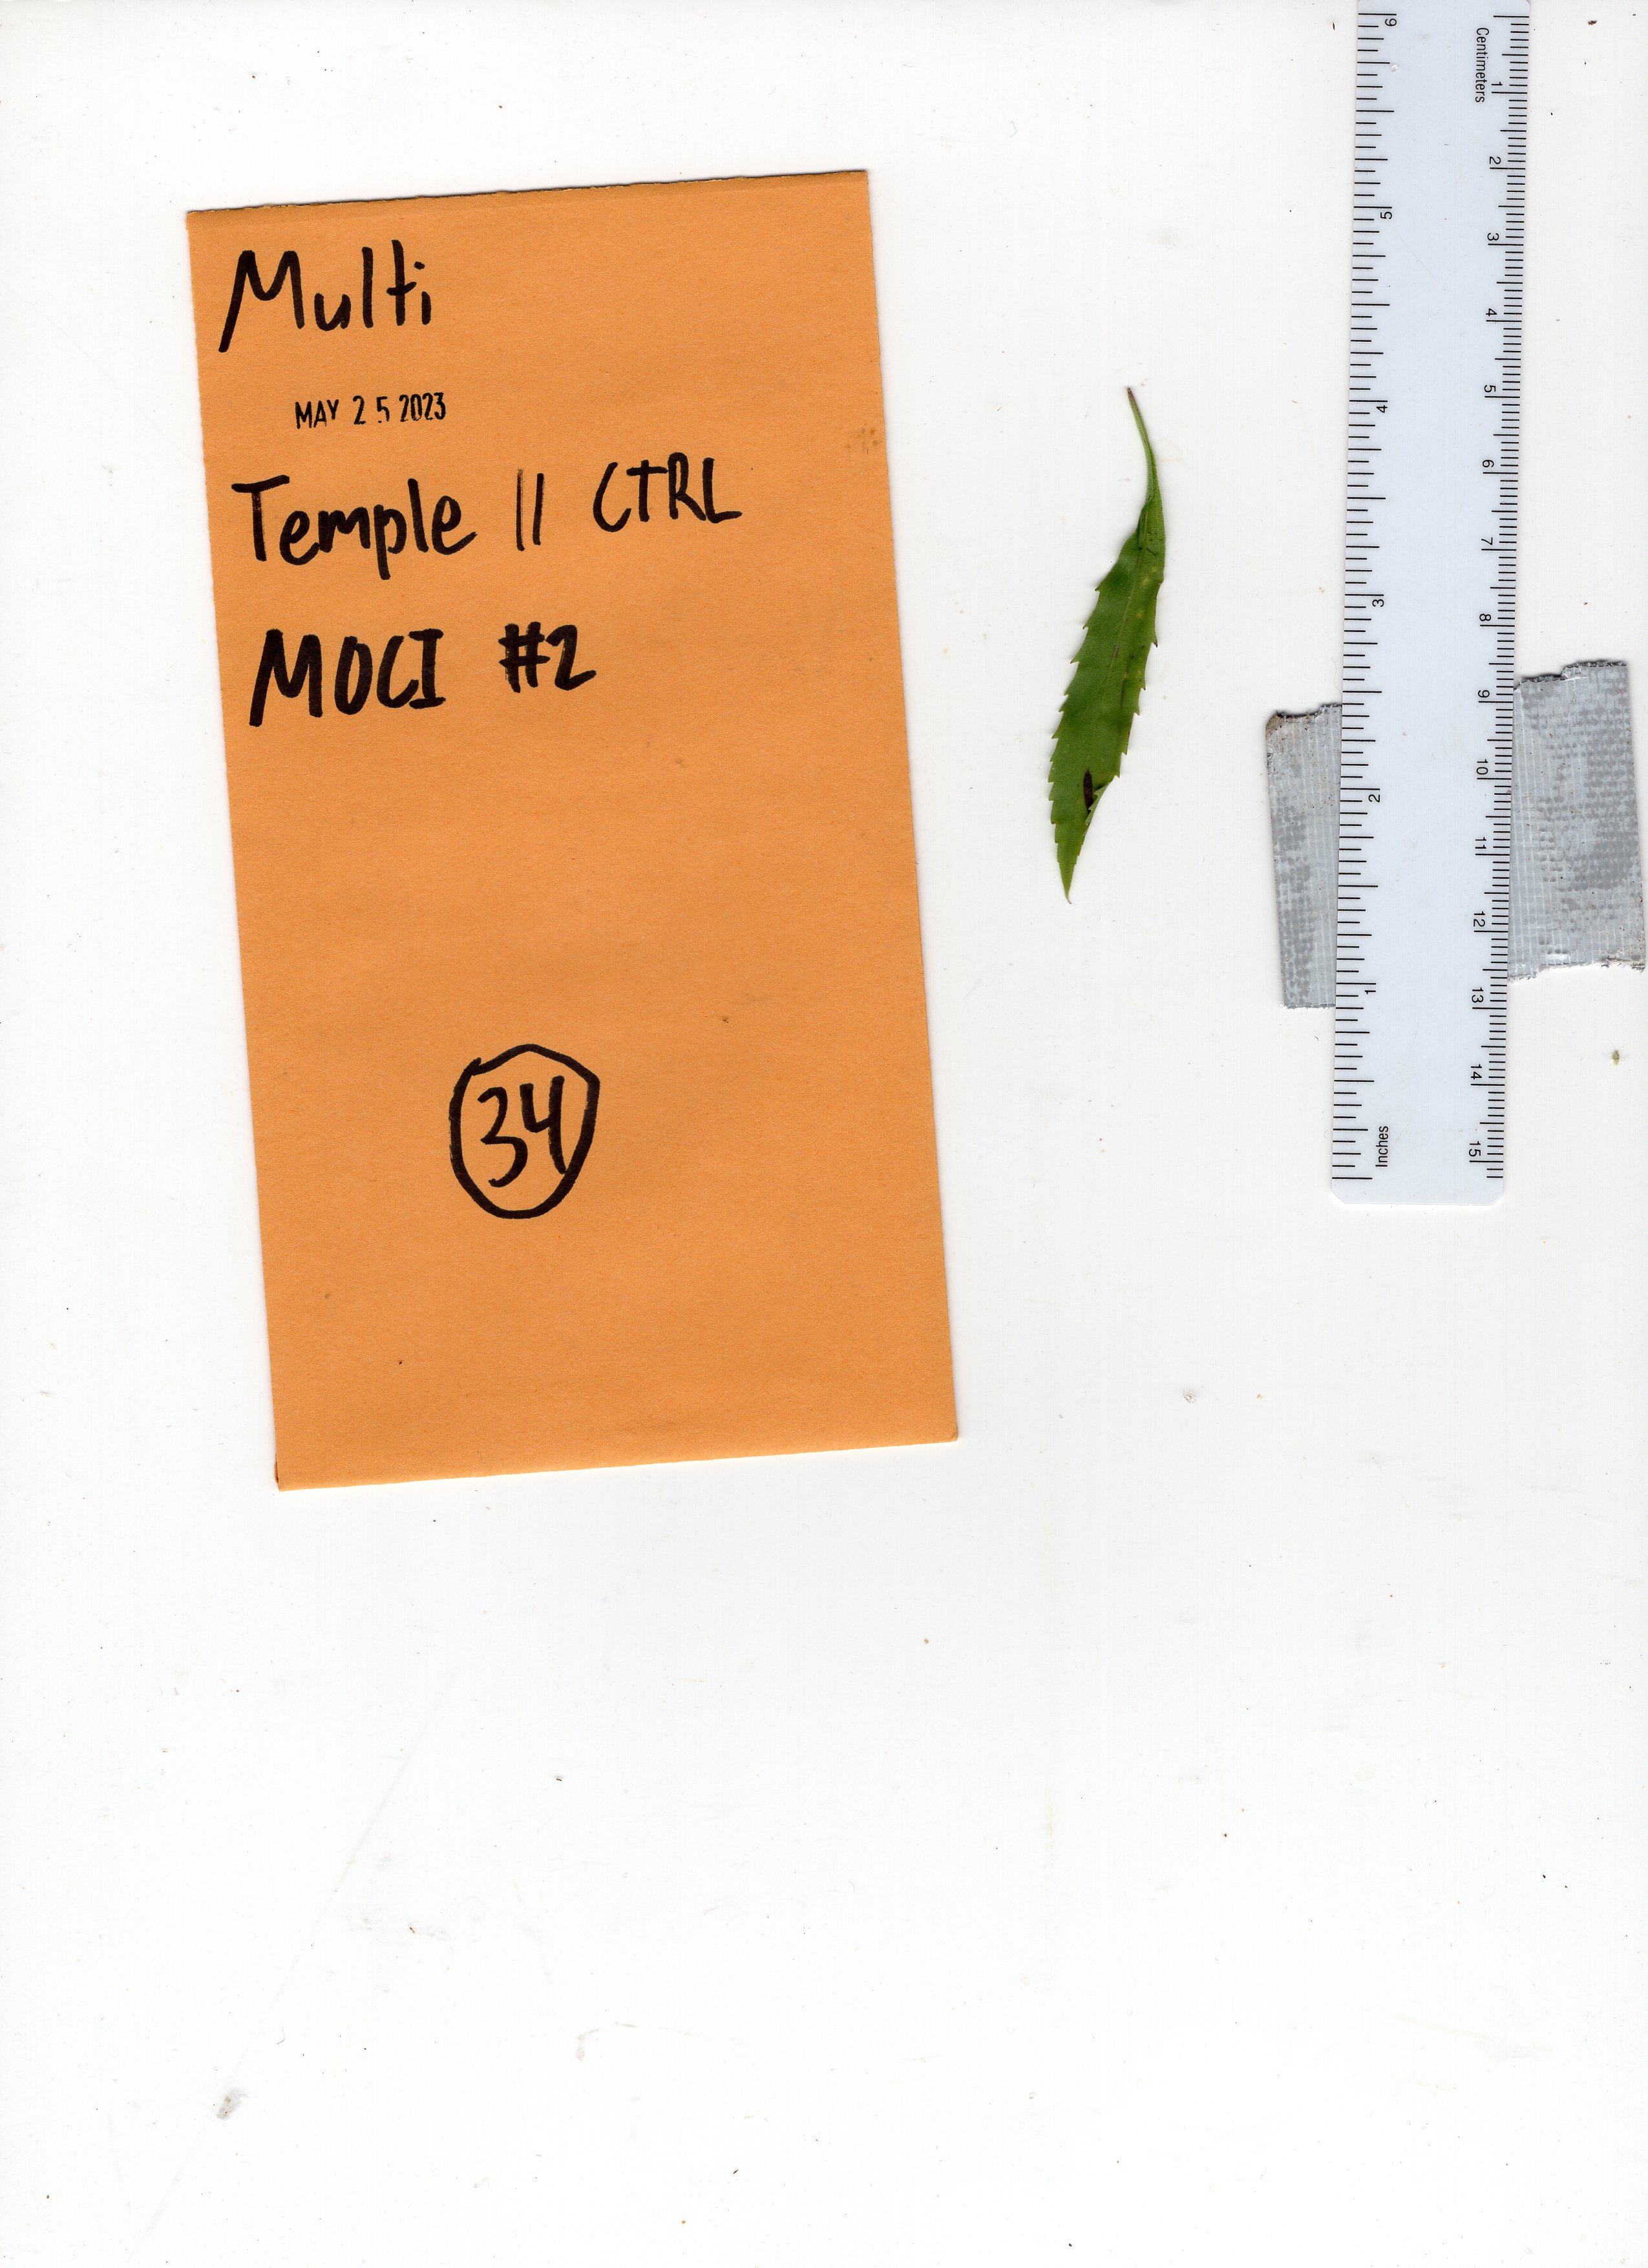 Multi
MAY 25 2023
Temple || CTRL
MOCI #2
34
Centimeters
1
2
3
4
5
6
7
8
9
10
11
12
13
14
15
6
5
4
3
2
1
Inches